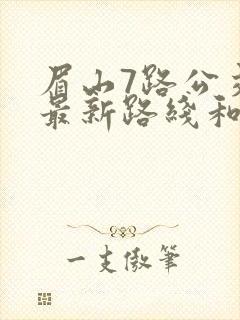 眉山7路公
最新路线和
一支傲笔